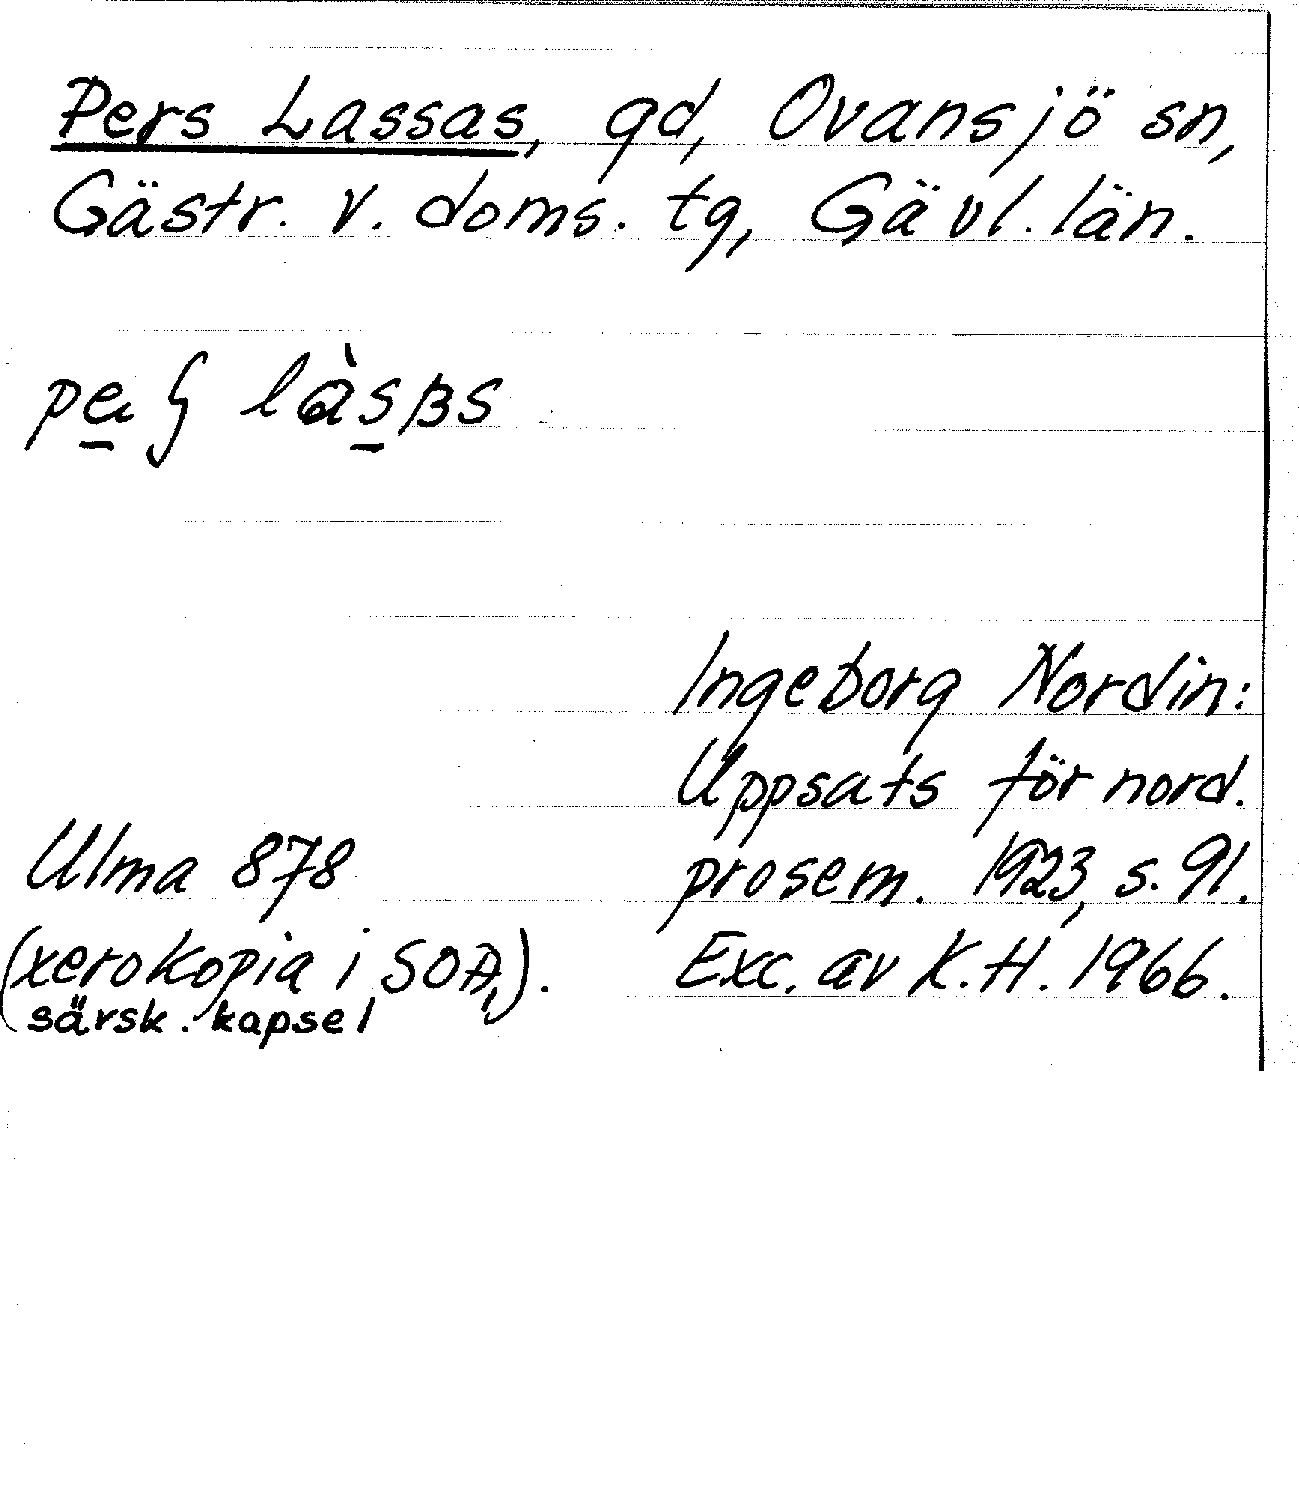 Pers Lassas, gd, Ovansjö sn,
Gästr. v. doms. tg, Gävl. län.
Ingeborg Nordin:
Uppsats för nord.
prosem. 1923, s. 91.
Exc. av K.H. 1966.
Ulma 878
(xerokopia i SOA,).
särsk. kapsel